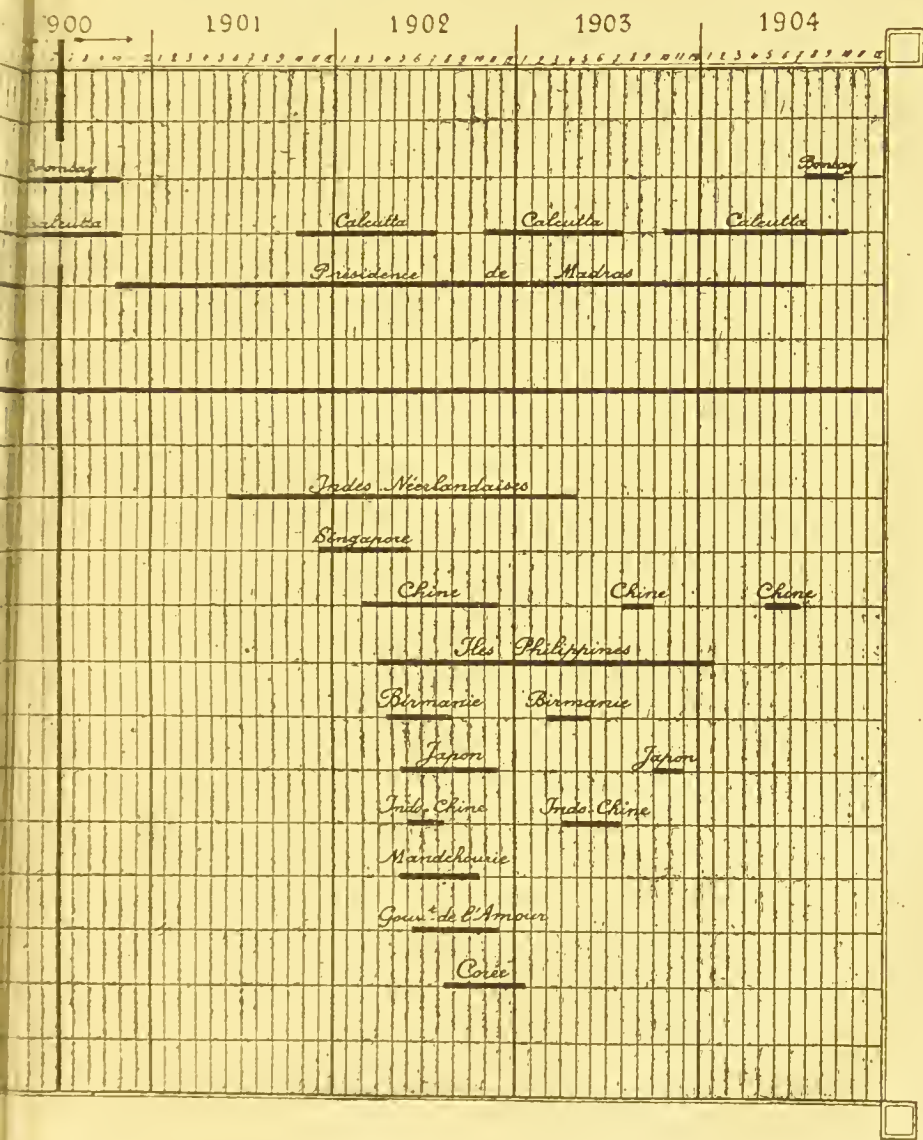 900 1901 1902 1903 1904
1 2 3 4 5 6 7 8 9 10 11 12 1 2 3 4 5 6 7 8 9 10 11 12 1 2 3 4 5 6 7 8 9 10 11 12 1 2 3 4 5 6 7 8 9 10 11 12
Bombay Bombay
Calcutta Calcutta Calcutta Calcutta
Présidence de Madras
Indes Néerlandaises
Singapore
Chine Chine Chine
Iles Philippines
Birmanie Birmanie
Japon Japon
Indo-Chine Indo-Chine
Mandchourie
Gouvt de l'Amour
Corée